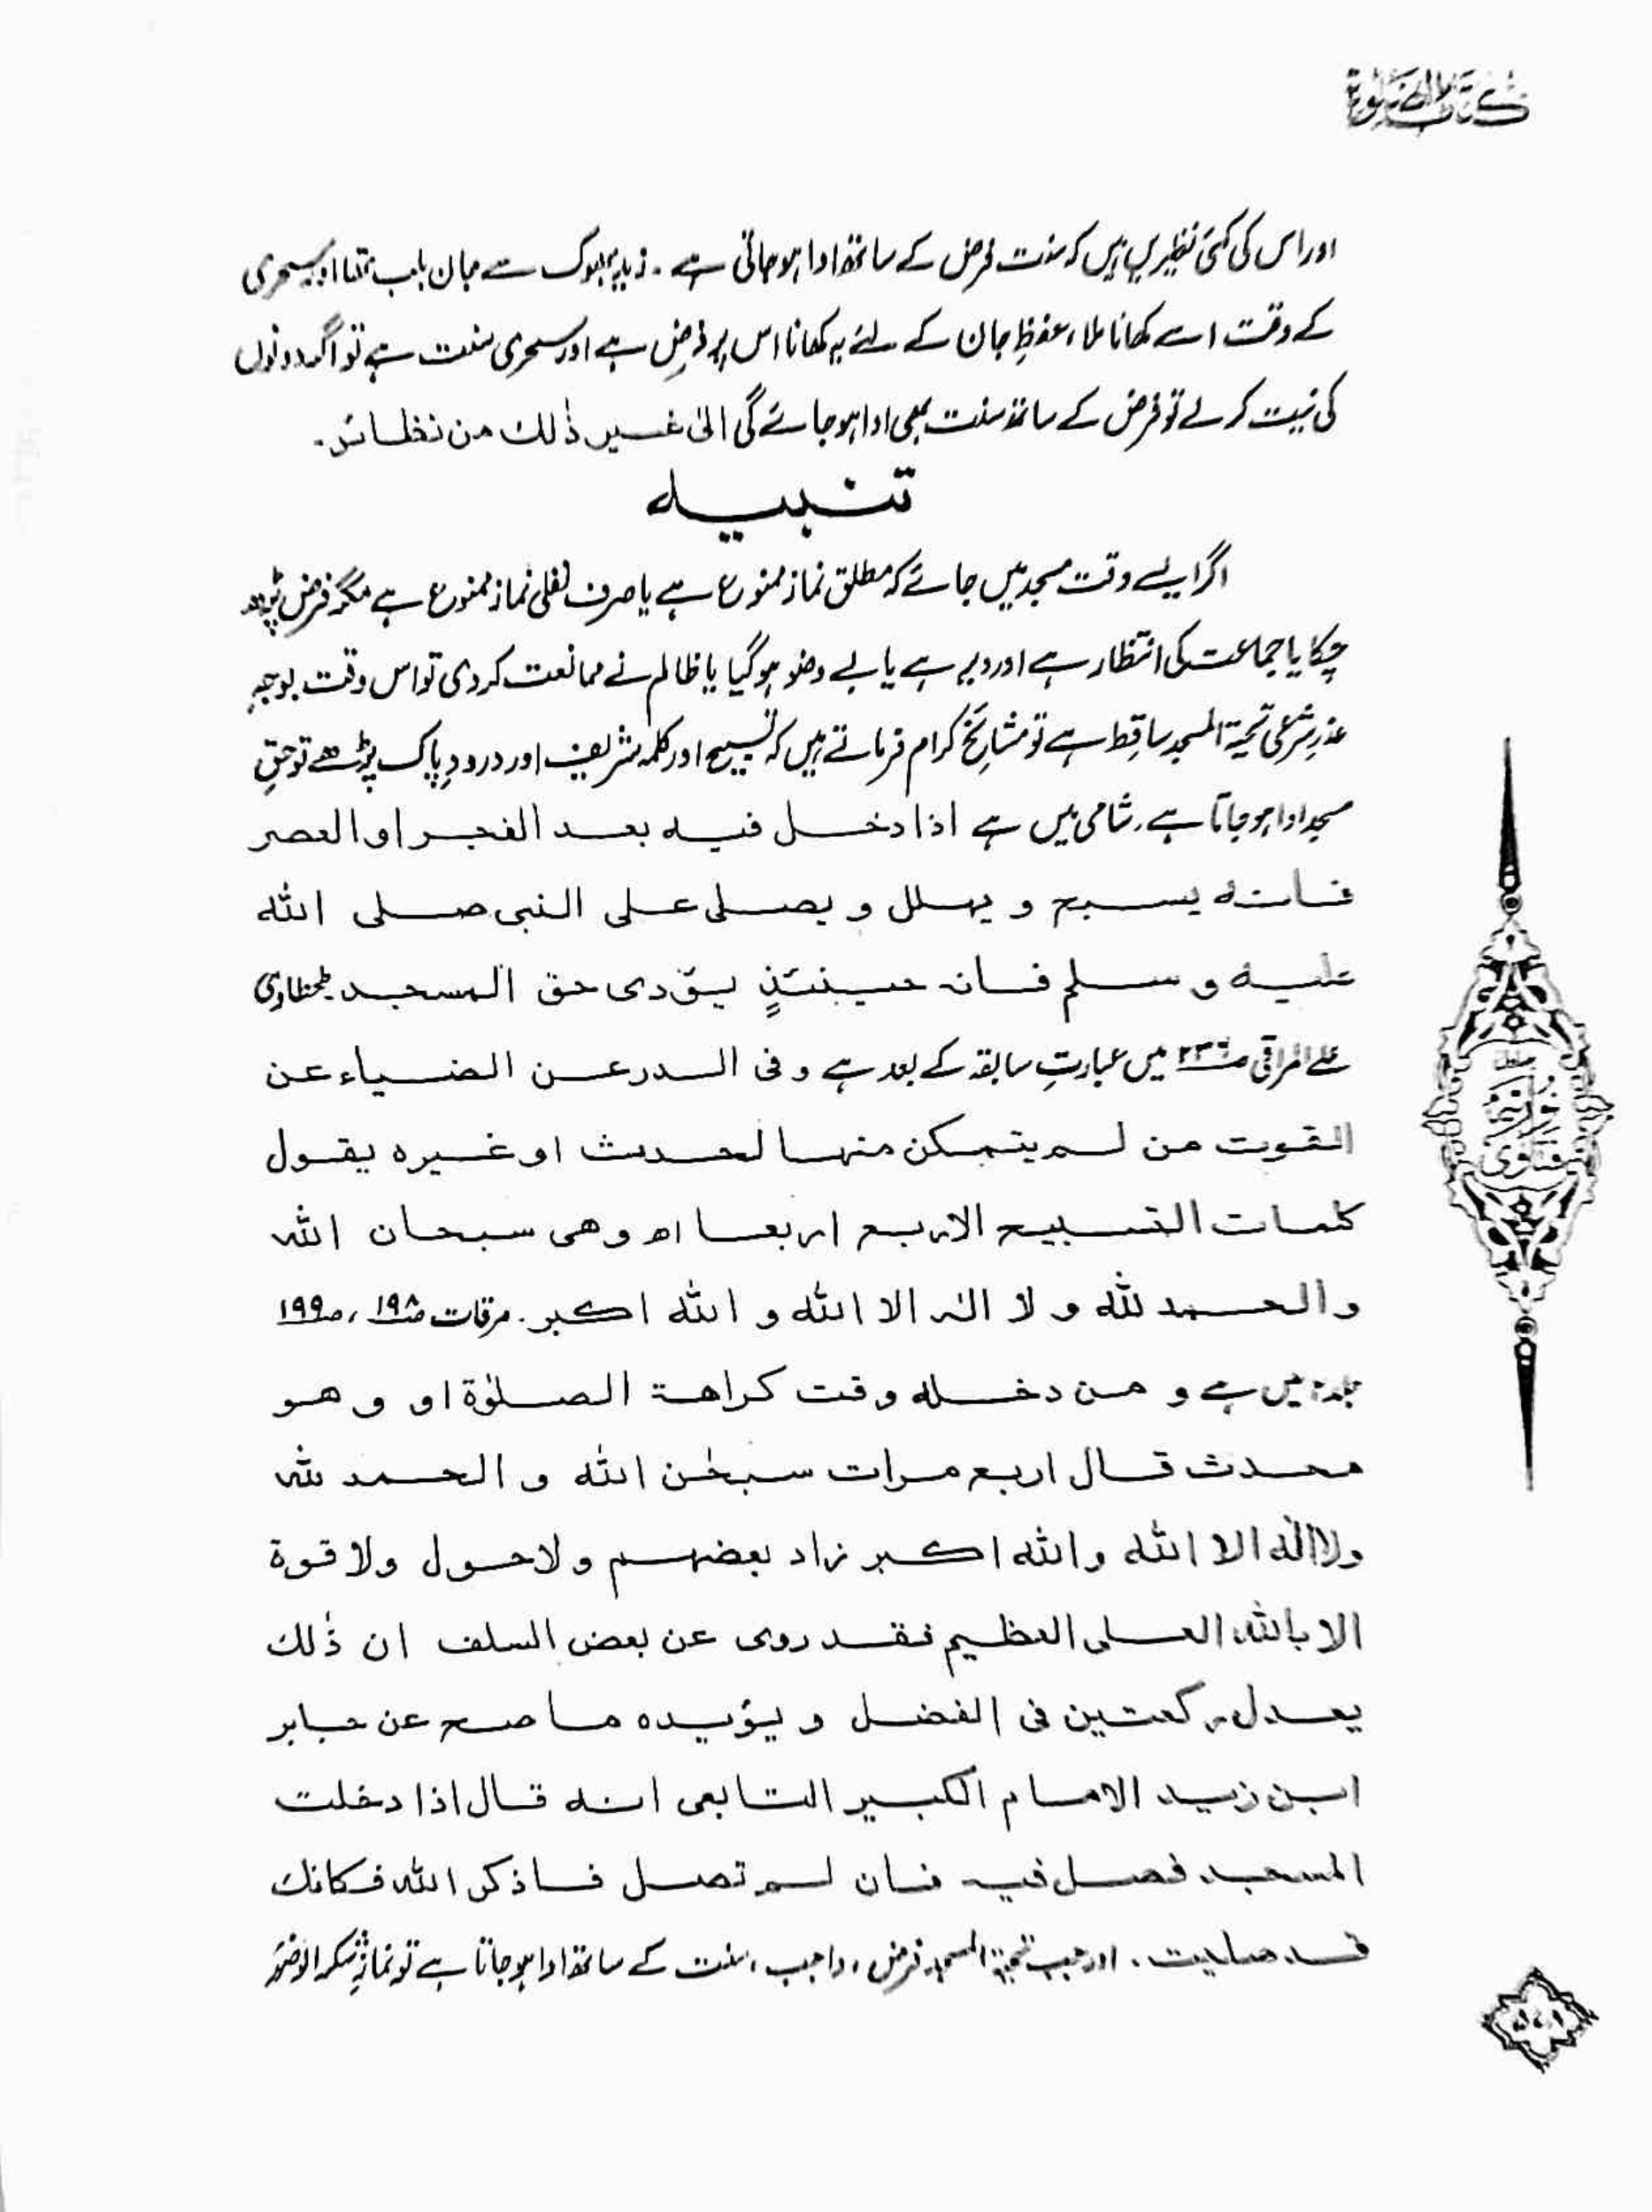 كتاب الصلوة
اور اس کی کئی نظیریں ہیں کہ سنت فرض کے ساتھ ادا ہو جاتی ہے۔ زید بھوک سے جان بلب تھا اور سحری
کے وقت اسے کھانا ملا، حفظِ جان کے لئے یہ کھانا اس پر فرض ہے اور سحری سنت ہے تو اگر دونوں
کی نیت کر لے تو فرض کے ساتھ سنت بھی ادا ہو جائے گی الیٰ غیر ذٰلک من نظائر۔
تنبیہ
اگر ایسے وقت مسجد میں جائے کہ مطلق نماز ممنوع ہے یا صرف نفلی نماز ممنوع ہے مگر فرض پڑھ
چکا یا جماعت کی انتظار ہے اور دیر ہے یا بے وضو ہو گیا یا ظالم نے ممانعت کر دی تو اس وقت بوجہِ
عذرِ شرعی تحیۃ المسجد ساقط ہے تو مشائخ کرام فرماتے ہیں کہ تسبیح اور کلمہ شریف اور درودِ پاک پڑھے تو حقِ
مسجد ادا ہو جاتا ہے۔ شامی میں ہے اذا دخل فیہ بعد الفجر او العصر
فانہ یسبح و یہلل و یصلی علی النبی صلی اللہ
علیہ و سلم فانہ حینئذٍ یؤدی حق المسجد۔ طحطاوی
علے المراقی ص۲۳۶ میں عبارتِ سابقہ کے بعد ہے و فی الدر عن الضیاء عن
القوت من لم یتمکن منہا لحدث او غیرہ یقول
کلمات التسبیح الاربع اربعا اھ و ھی سبحان اللہ
و الحمد للہ و لا الٰہ الا اللہ و اللہ اکبر۔ مرقات ص۱۹۸، ص۱۹۹
جلد۲ میں ہے و من دخلہ وقت کراھۃ الصلوٰۃ او و ھو
محدث قال اربع مرات سبحٰن اللہ و الحمد للہ
ولا الٰہ الا اللہ و اللہ اکبر زاد بعضہم و لا حول ولا قوۃ
الا باللہ العلی العظیم فقد روی عن بعض السلف ان ذٰلك
یعدل رکعتین فی الفضل و یؤیدہ ما صح عن جابر
ابن زید الامام الکبیر التابعی انہ قال اذا دخلت
المسجد فصل فیہ فان لم تصل فاذکر اللہ فکانك
قد صلیت۔ اور جب تحیۃ المسجد فرض، واجب، سنت کے ساتھ ادا ہو جاتا ہے تو نمازِ شکر الوضوء
فتاوی نوریہ